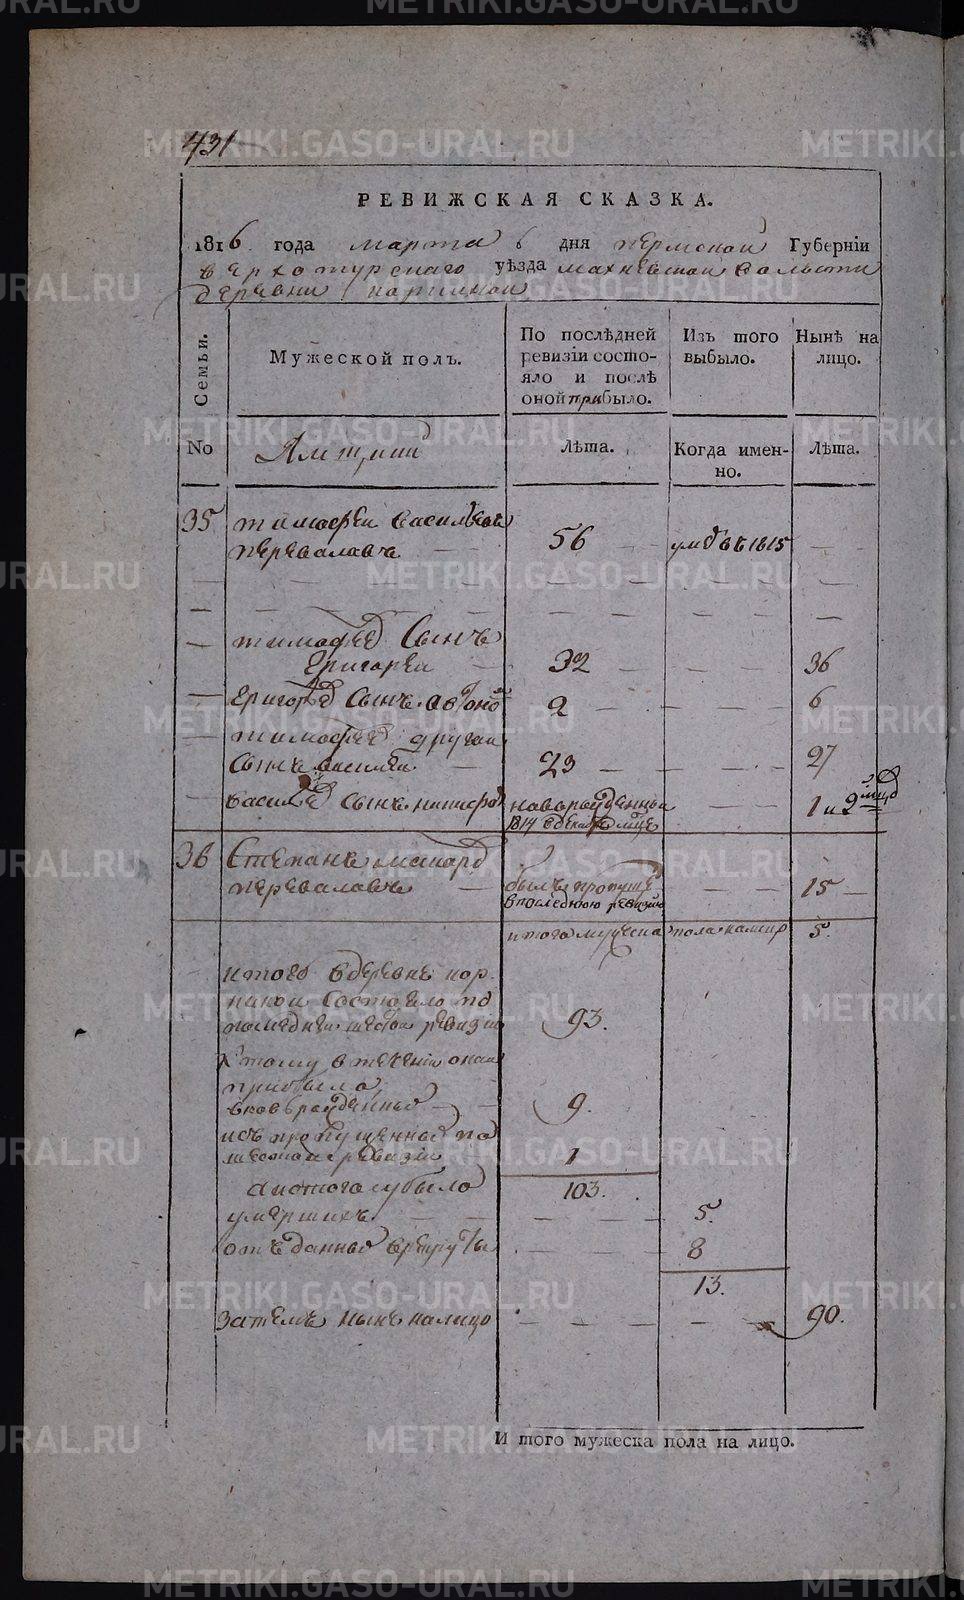 431
РЕВИЖСКАЯ СКАЗКА.
1816 года марта 6 дня пермской Губерніи
верхотурскаго уѣзда махневской волости
деревни
Семьи.
Мужеской полъ.
По послѣдней ревизіи состояло и послѣ оной прибыло.
Изъ того выбыло.
Нынѣ на лицо.
No
Ямщики
Лѣта.
Когда именно.
Лѣта.
35 тимофеи васильевъ
переваловъ 56 умре въ 1815
тимофея сынъ
григореи 32 36
григорья сынъ 2 6
тимофея другои
сынъ василеи 23 27
василья сынъ новорожденныи 1 и 2 мца
1814 декабря мце
36 Степанъ
переваловъ былъ пропущен 15
в последнюю ревизию
итого мужеска пола налицо 5.
итого в деревне
состояло по
последнеи шестои ревизии 93.
к тому в течении онои
прибыло
вновь рожденных 9.
ис пропущенных по
шестои ревизии 1
103.
а из того убыло
умерших 5.
отъданных в рекруты 8
13.
Затемъ ныне налицо 90.
И того мужеска пола на лицо.
METRIKI.GASO-URAL.RU